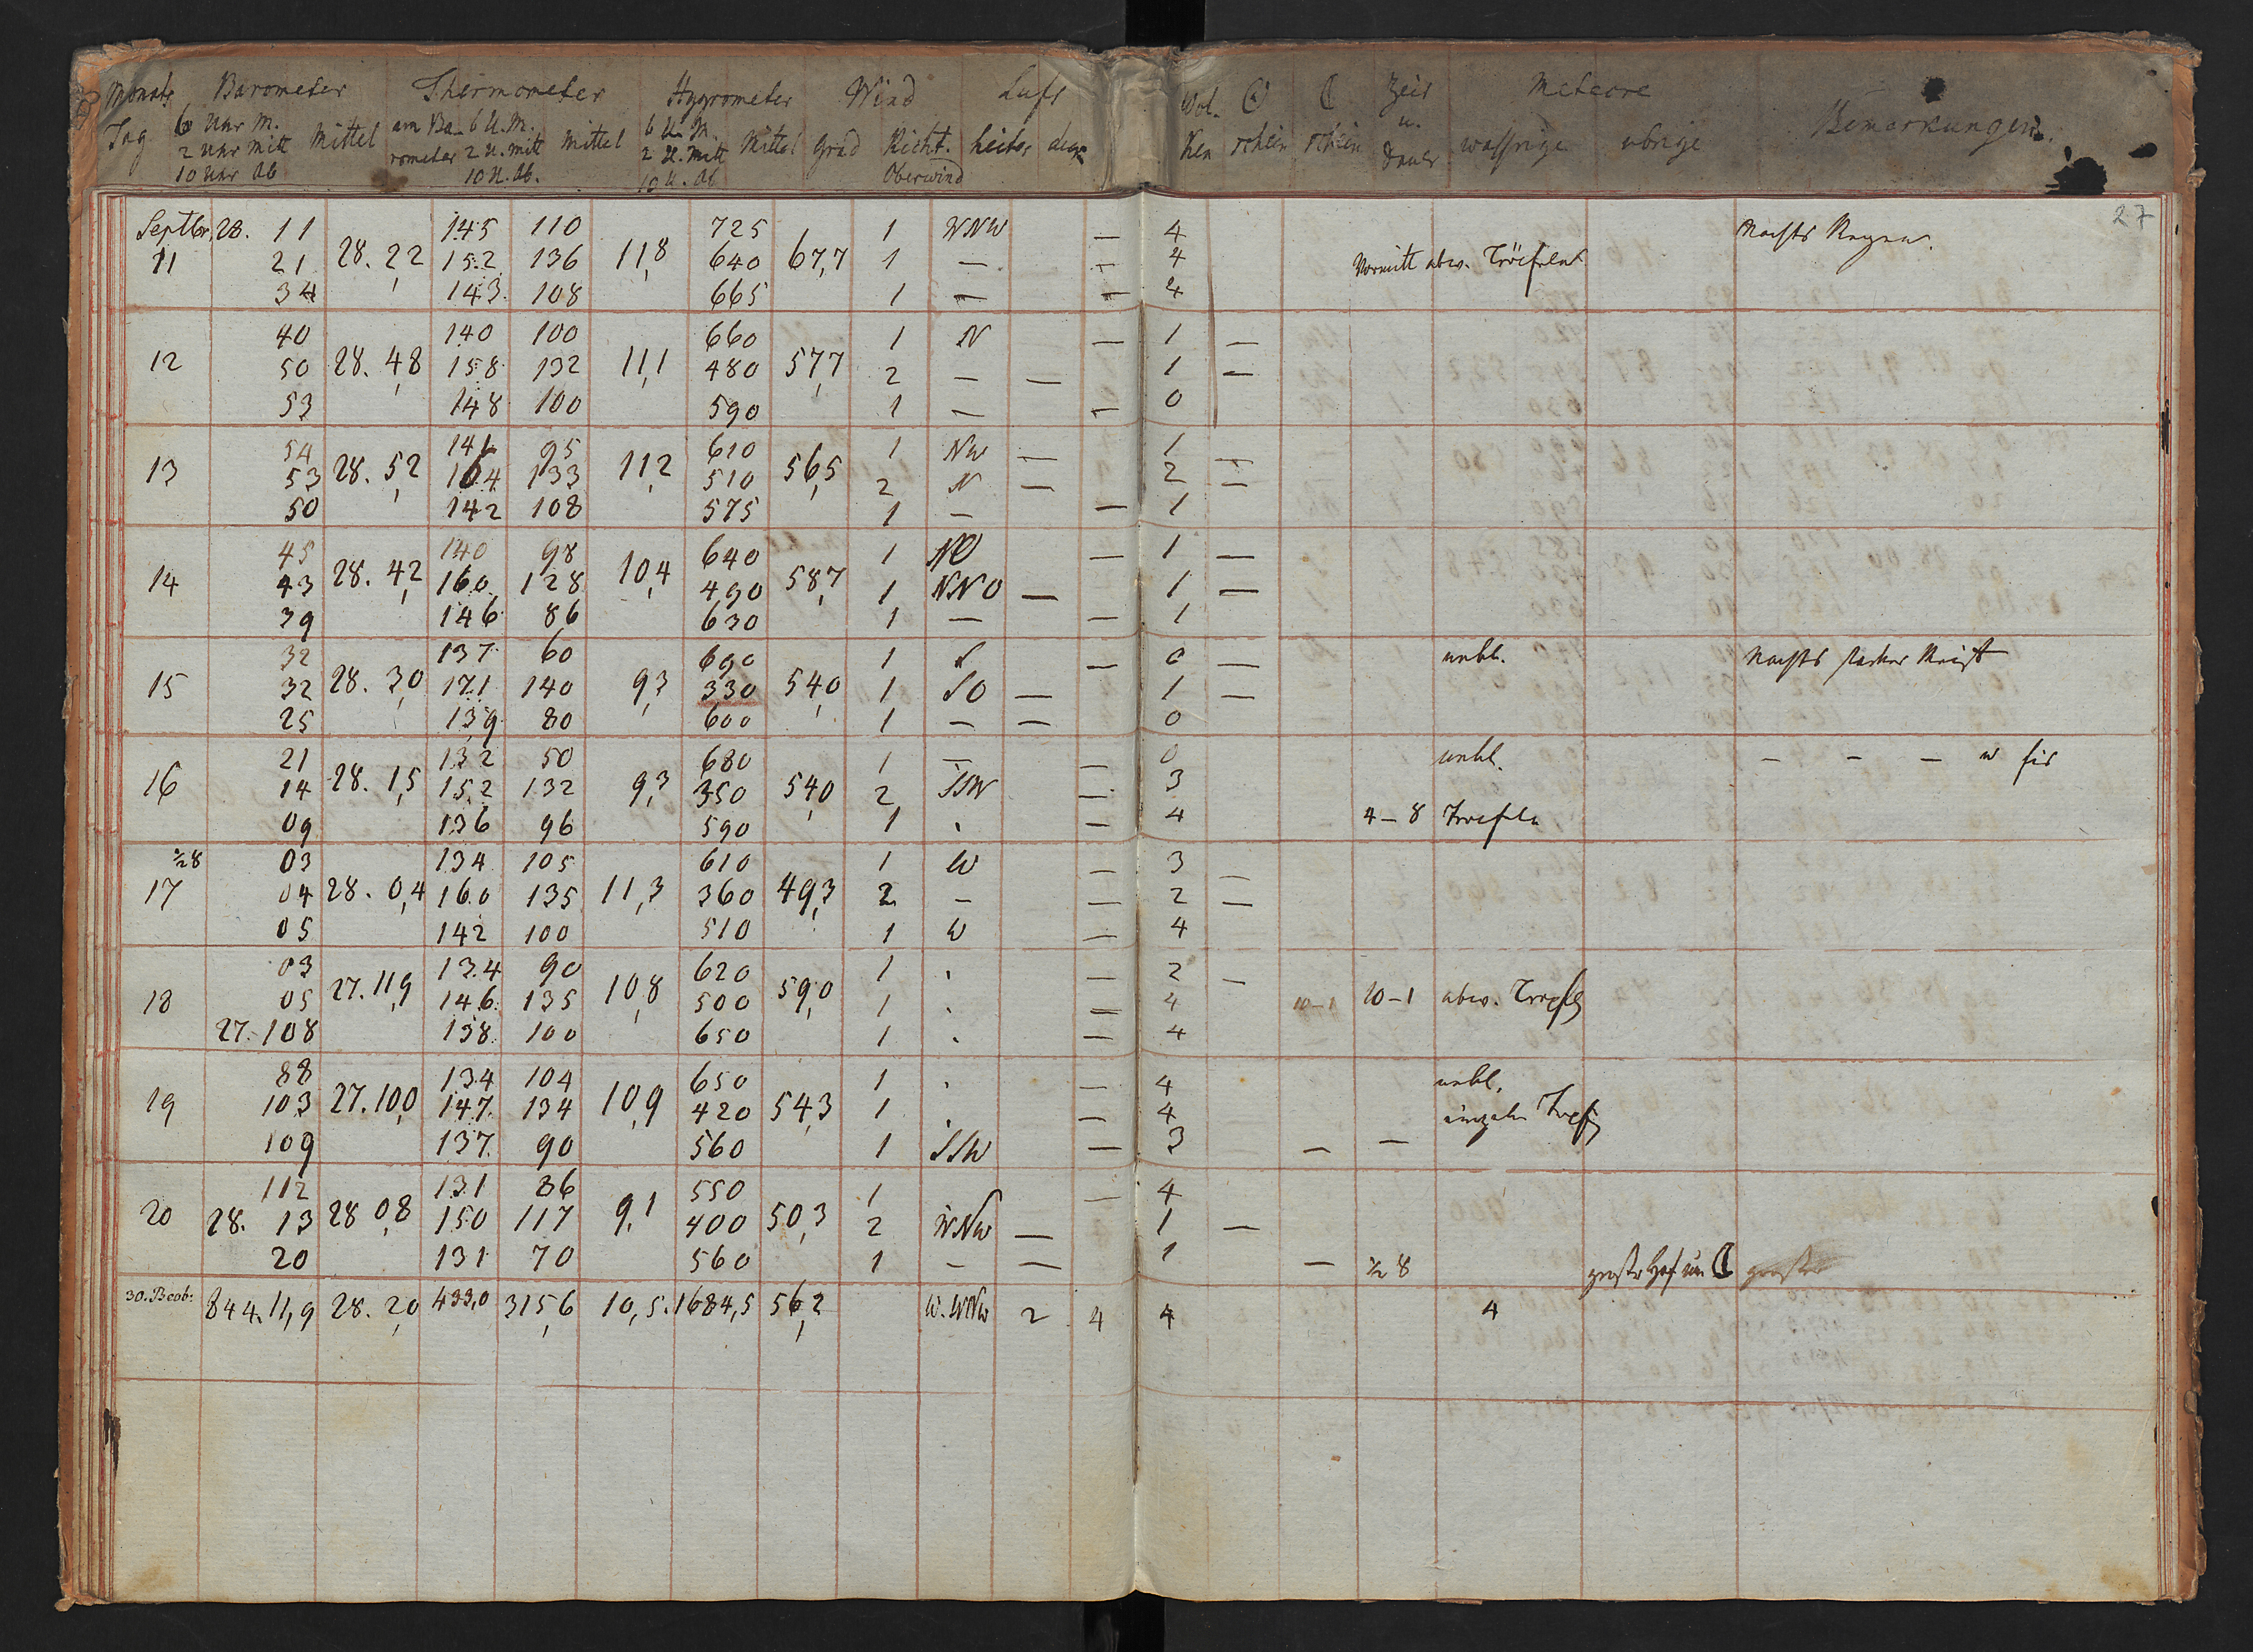 Monats Barometer Thermometer Hygrometer Wind Luft Wol- ☉ ☾ Zeit Meteore Bemerkungen.
Tag 6 Uhr M. Mittel am Ba- 6 U. M. Mittel 6 U. M. Mittel Grad Richt. heiter ken schein schein u. wassrige ubrige
2 Uhr Mitt rometer 2 U. Mitt 2 U. Mitt Dauer
10 Uhr Ab 10 U. Ab. 10 U. Ab Oberwind
27
Septbr. 28. 11 145 110 725 1 WNW — 4 Nachts Regen.
11 21 28. 22 15.2 136 11,8 640 67,7 1 — — 4 Vormitt abw. Tröpfeln
34 143 108 665 1 — — 4
40 140 100 660 1 N — 1 —
12 50 28. 48 158 132 11,1 480 57,7 2 — — 1 —
53 148 100 590 1 — — 0
54 141 95 610 1 NW — 1 —
13 53 28. 52 164 133 11,2 510 56,5 2 N — 2 —
50 142 108 575 1 — — 1
45 140 98 640 1 NO — 1 —
14 43 28. 42 160 128 10,4 490 58,7 1 NNO — 1 —
39 146 86 630 1 — — 1
32 137 60 690 1 S — 0 — nebl. Nachts starker
15 32 28. 30 171 140 9,3 330 54,0 1 SO — 1 —
25 139 80 600 1 — — 0
21 132 50 680 1 — — 0 nebl. — — —
16 14 28. 1,5 15.2 132 9,3 350 54,0 2 SSW — 3
09 136 96 590 1 — 4 4 – 8 Troepfeln
½8 03 134 105 610 1 W — 3 —
17 04 28. 0,4 160 135 11,3 360 49,3 2 — — 2 —
05 142 100 510 1 W — 4
03 13.4 90 620 1 — 2 —
18 05 27. 11,9 14.6 135 10,8 500 59,0 1 — 4 10–1 10–1 abw. Tropfen
27. 108 138 100 650 1 — 4
88 134 104 650 1 — 4 nebl.
19 103 27. 10,0 147 134 10,9 420 54,3 1 — 4 einzeln Tropfen
109 137 90 560 1 SSW — 3 — —
112 131 86 550 1 — 4
20 28. 13 28 0,8 150 117 9,1 400 50,3 2 WNW — 1 —
20 131 70 560 1 — — 1 — ½ 8 großer Hof um ☾
30. Beob: 844. 11,9 28. 2,0 433,0 315,6 10,5. 1684,5 56,2 W. WNW 2 4 4 4